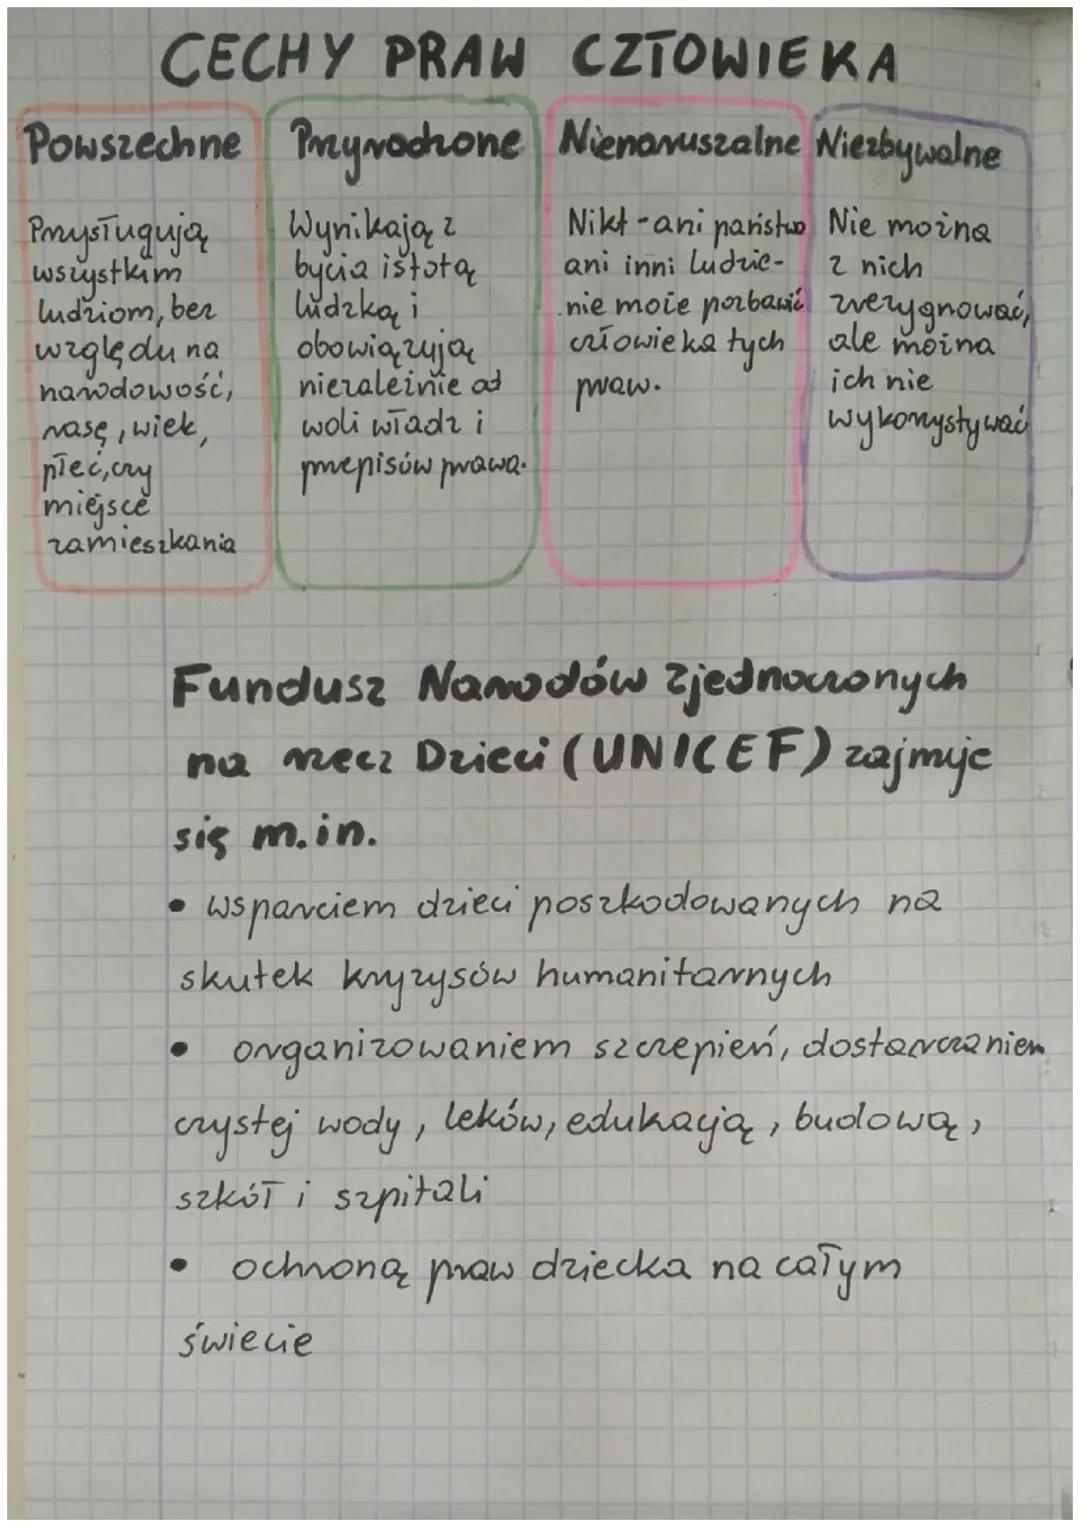 CECHY PRAW CZŁOWIEKA
Powszechne
Przysługują
wszystkim
ludziom, bez
względu na
narodowość,
rasę, wiek,
płeć, czy
miejsce
zamieszkania
Przyrodzone
Wynikają z
bycia istotą
ludzką i
obowiązują
niezależnie od
woli władz i
przepisów prawa.
Nienaruszalne
Nikt - ani państwo
ani inni ludzie -
nie może pozbawić
człowieka tych
praw.
Niezbywalne
Nie można
z nich
zrezygnować,
ale można
ich nie
wykorzystywać
Fundusz Narodów Zjednoczonych
na rzecz Dzieci (UNICEF) zajmuje
się m.in.
• wsparciem dzieci poszkodowanych na
skutek kryzysów humanitarnych
• organizowaniem szczepień, dostarczaniem
czystej wody, leków, edukacją, budową,
szkół i szpitali
• ochroną praw dziecka na całym
świecie